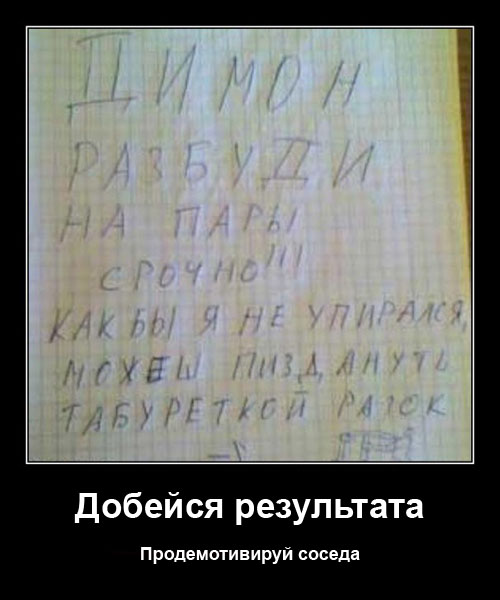 ДИМОН
РАЗБУДИ
НА ПАРЫ
СРОЧНО!!!
КАК БЫ Я НЕ УПИРАЛСЯ,
МОХЕШ ПИЗДАНУТЬ
ТАБУРЕТКОЙ РАЗОК
Добейся результата
Продемотивируй соседа